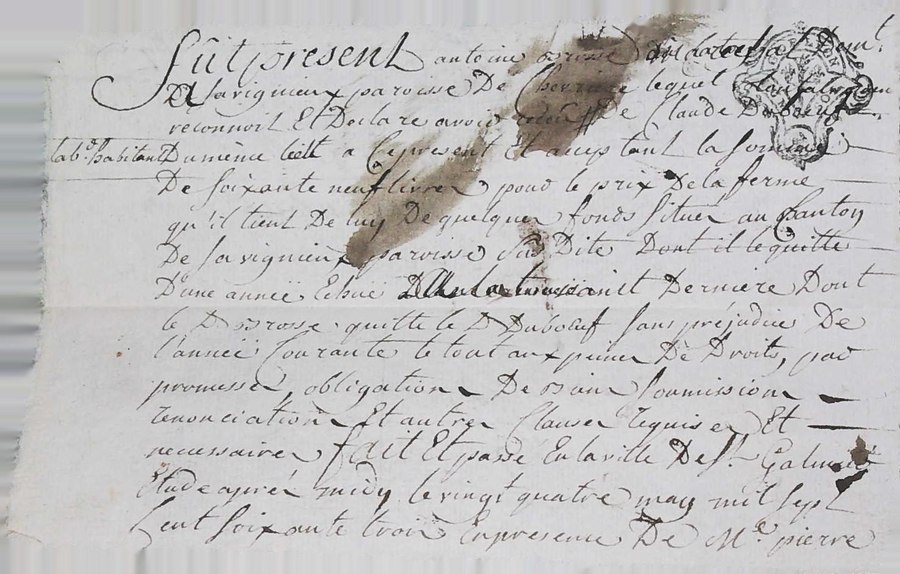 Fut present antoine
De Savignieux paroisse De Chevriere lequel
reconnoit Et Declare avoir reçu De Claude Duboeuf
lab.r habitant Dumême lieu a Cepresent Et acceptant la somme
De soixante neuf livres pour le prix Dela ferme
qu'il tient De luy De quelques fonds situes au Canton
De Savignieux paroisse sus Dite Dont il lequitte
D'une anneë Echuë Derniere Dont
le D quitte le D Duboeuf sans préjudice De
l'anneë Courante le tout aux peines De Droits, par
promesse, obligation De soumission
renonciation Et autres Clauses requises Et
necessaires fait Et passé Enlaville De St. Galmier
Etude aprés midy le vingt quatre may mil sept
Cent soixante trois Enpresence De Me. pierre